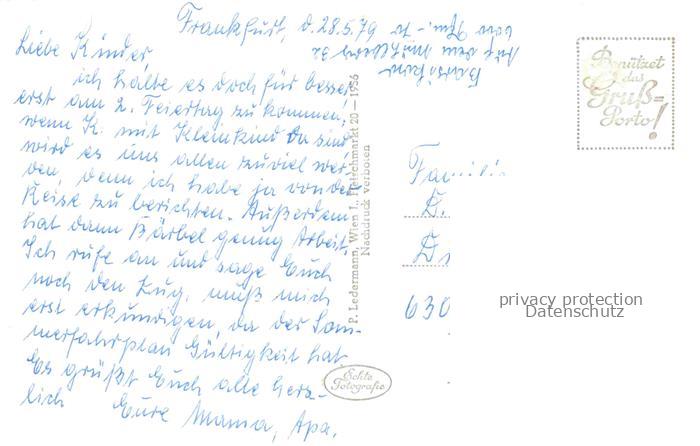 Frankfurt, d. 28.5.79
Liebe Kinder,
ich halte es doch für besser,
erst am 2. Feiertag zu kommen,
wenn K. mit Kleinkind da sind
wird es uns allen zuviel wer-
den, denn ich habe ja von der
Reise zu berichten. Außerdem
hat dann Bärbel genug Arbeit.
Ich rufe an und sage Euch
noch den Zug, muß mich
erst erkundigen, da der Som-
merfahrplan Gültigkeit hat.
Es grüßt Euch alle herz-
lich Eure Mama, Apa.
P. Ledermann, Wien I., Fleischmarkt 20 — 1956
Nachdruck verboten
Echte
Fotografie
Benützet
das
Gruß=
Porto!
Famili
D.
630
privacy protection
Datenschutz